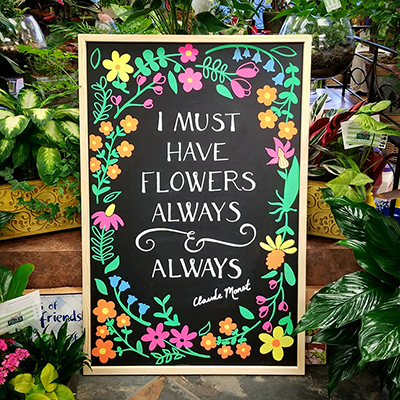 I MUST
HAVE
FLOWERS
ALWAYS
&
ALWAYS
Claude Monet
of
friends